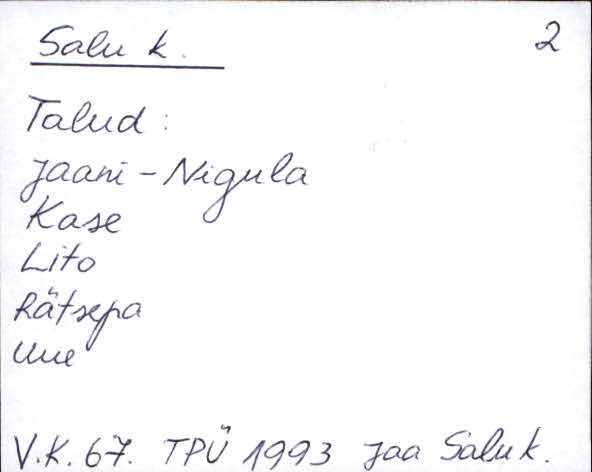 Salu k. 2
Talud:
Jaani-Nigula
Kase
Lito
Rätsepa
Uue
V.K. 67. TPÜ 1993 Jaa Salu k.